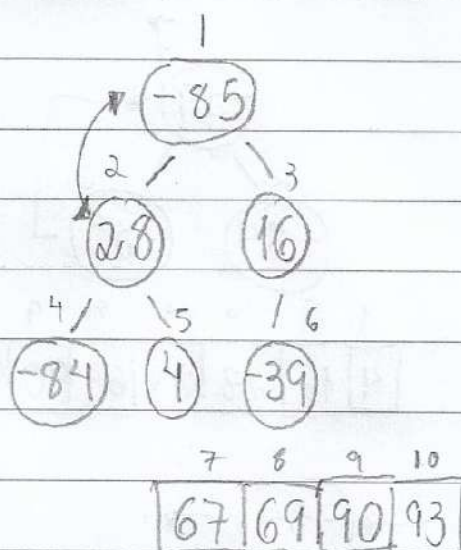 1
-85
2 3
28 16
4 5 6
-84 4 -39
7 8 9 10
67 69 90 93